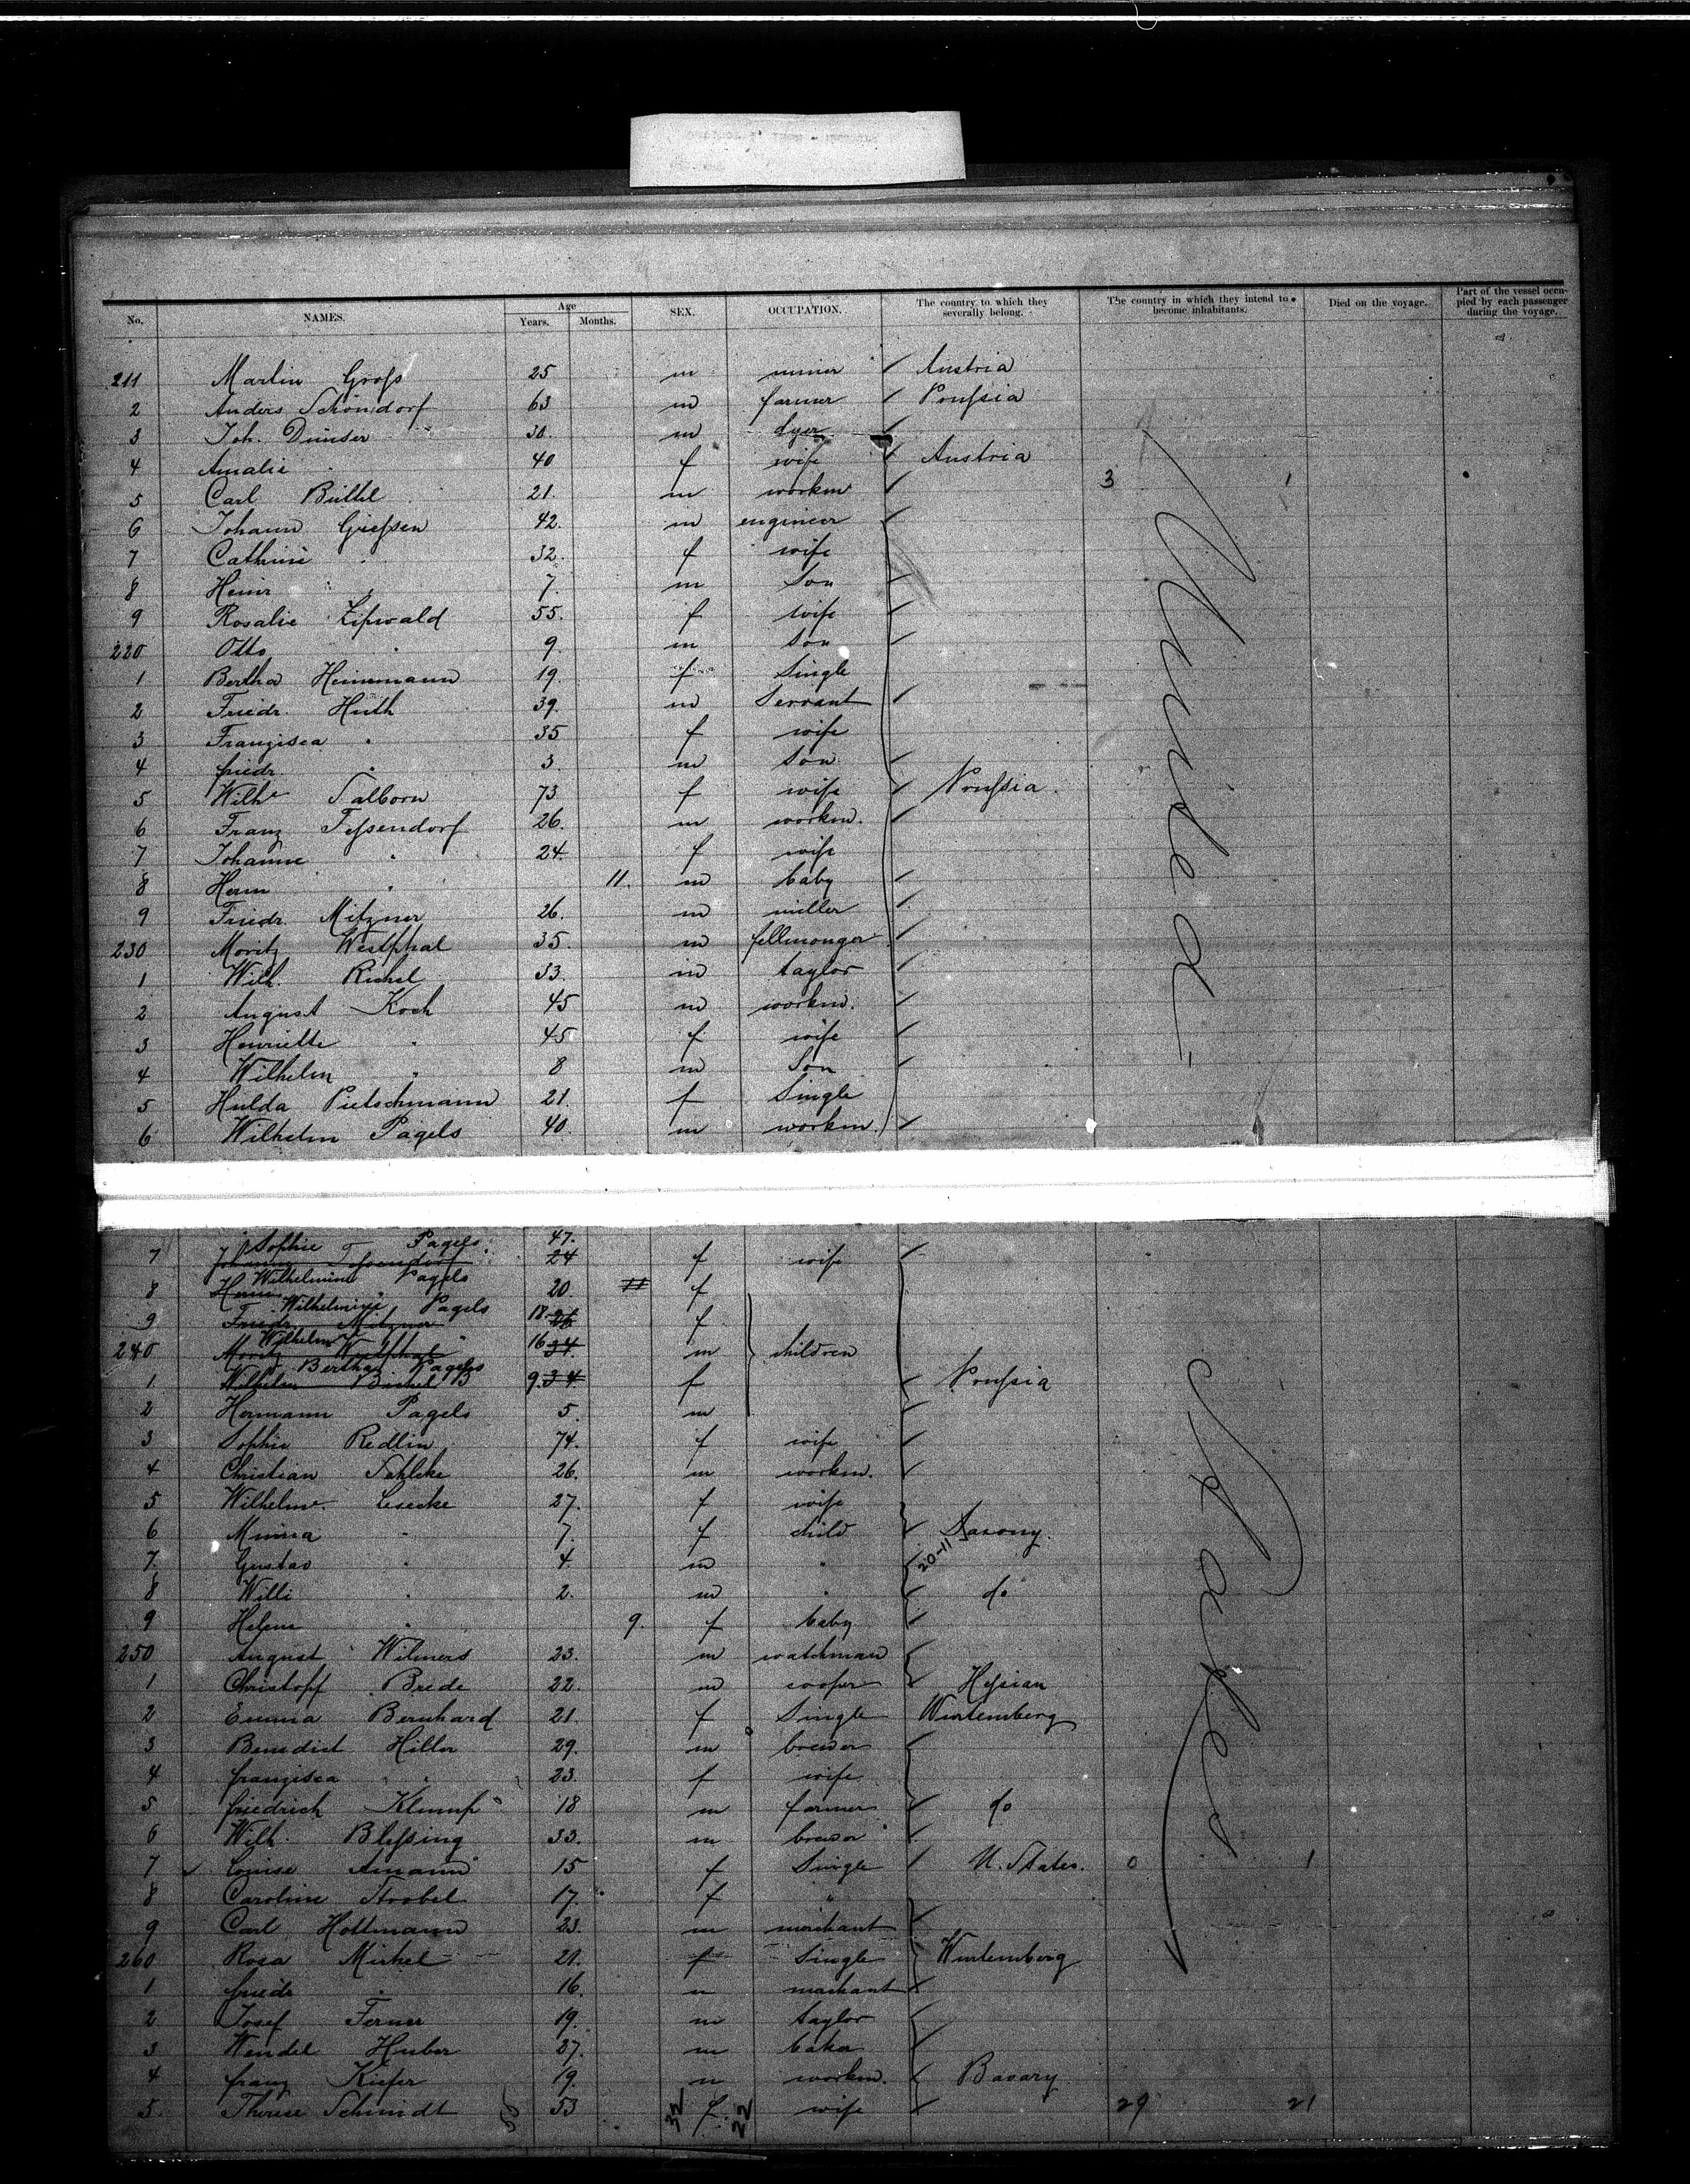 No. NAMES. Age Years. Months. SEX. OCCUPATION. The country to which they severally belong. The country in which they intend to become inhabitants. Died on the voyage. Part of the vessel occupied by each passenger during the voyage.
211 Martin Groß 25 m miner Austria
2 Anders Schöndorf 63 m farmer Prußia
3 Joh. Dünser 30. m dyer
4 Amalie " 40 f wife Austria 3 1
5 Carl Büttel 21. m workm
6 Johann Gießen 42. m engineer
7 Cathrine " 32. f wife
8 Heinr " 7. m Son
9 Rosalie Zipwald 55. f wife
220 Otto " 9. m Son
1 Bertha Heinemann 19. f Single
2 Friedr. Huth 39. m Servant
3 Franzisca " 35 f wife
4 friedr. " 3. m Son
5 Wilhe Salborn 73 f wife Prußia.
6 Franz Teßendorf 26. m workm.
7 Johanne " 24. f wife
8 Herm " 11. m baby
9 Friedr. Mitzner 26. m miller
230 Moritz Westphal 35. m fellmonger
1 Wilh. Richel 33. m taylor
2 August Koch 45 m workm.
3 Henriette " 45 f wife
4 Wilhelm " 8 m Son
5 Hulda Pietschmann 21. f Single
6 Wilhelm Pagels 40. m workm.
United
Sophie Pagels. 47.
7 Johanne Teßendorf 24 f wife
Wilhelmine Pagels
8 Herm 20. 11 f
Wilhelmine Pagels 18.
9 Friedr. Mitzner 26 f
Wilhelm " 16
240 Moritz Westphal 34. m children
Bertha Pagels
1. Wilhelm Bichel 9. 34 f Prußia
2 Hermann Pagels 5. m
3 Sophie Redlin 74. f wife
4 Christian Sahleke 26. m workm.
5 Wilhelme. Lesecke 27. f wife
6 Minna " 7. f child Saxony.
20-11
7. Gustav " 4. m "
8 Willi " 2. m " do
9 Helene " 9. f baby
250 August Wilmers 23. m watchman
1 Christopf Brede 22. m cooper Heßian
2 Emma Bernhard 21. f Single Wurtemberg
3 Benedict Hiller 29. m brewer
4 franzisca " 23. f wife
5 friedrich Klumpp 18 m farmer do
6 Wilh. Bleßing 33. m brewer
7 Louise Amann 15 f Single U. States. 0 1
8 Caroline Strobel 17. f "
9 Carl Hottmann 23. m merchant
260 Rosa Mirkel 21. f Single Wurtemberg
1 friedr " 16. m machant
2 Josef Ferner 19. m taylor
3 Wendel Huber 37. m baker
4 franz Kiefer 19. m workm. Bavary
5. Therese Schmidt 53 32 f. 22 wife 29 21
States